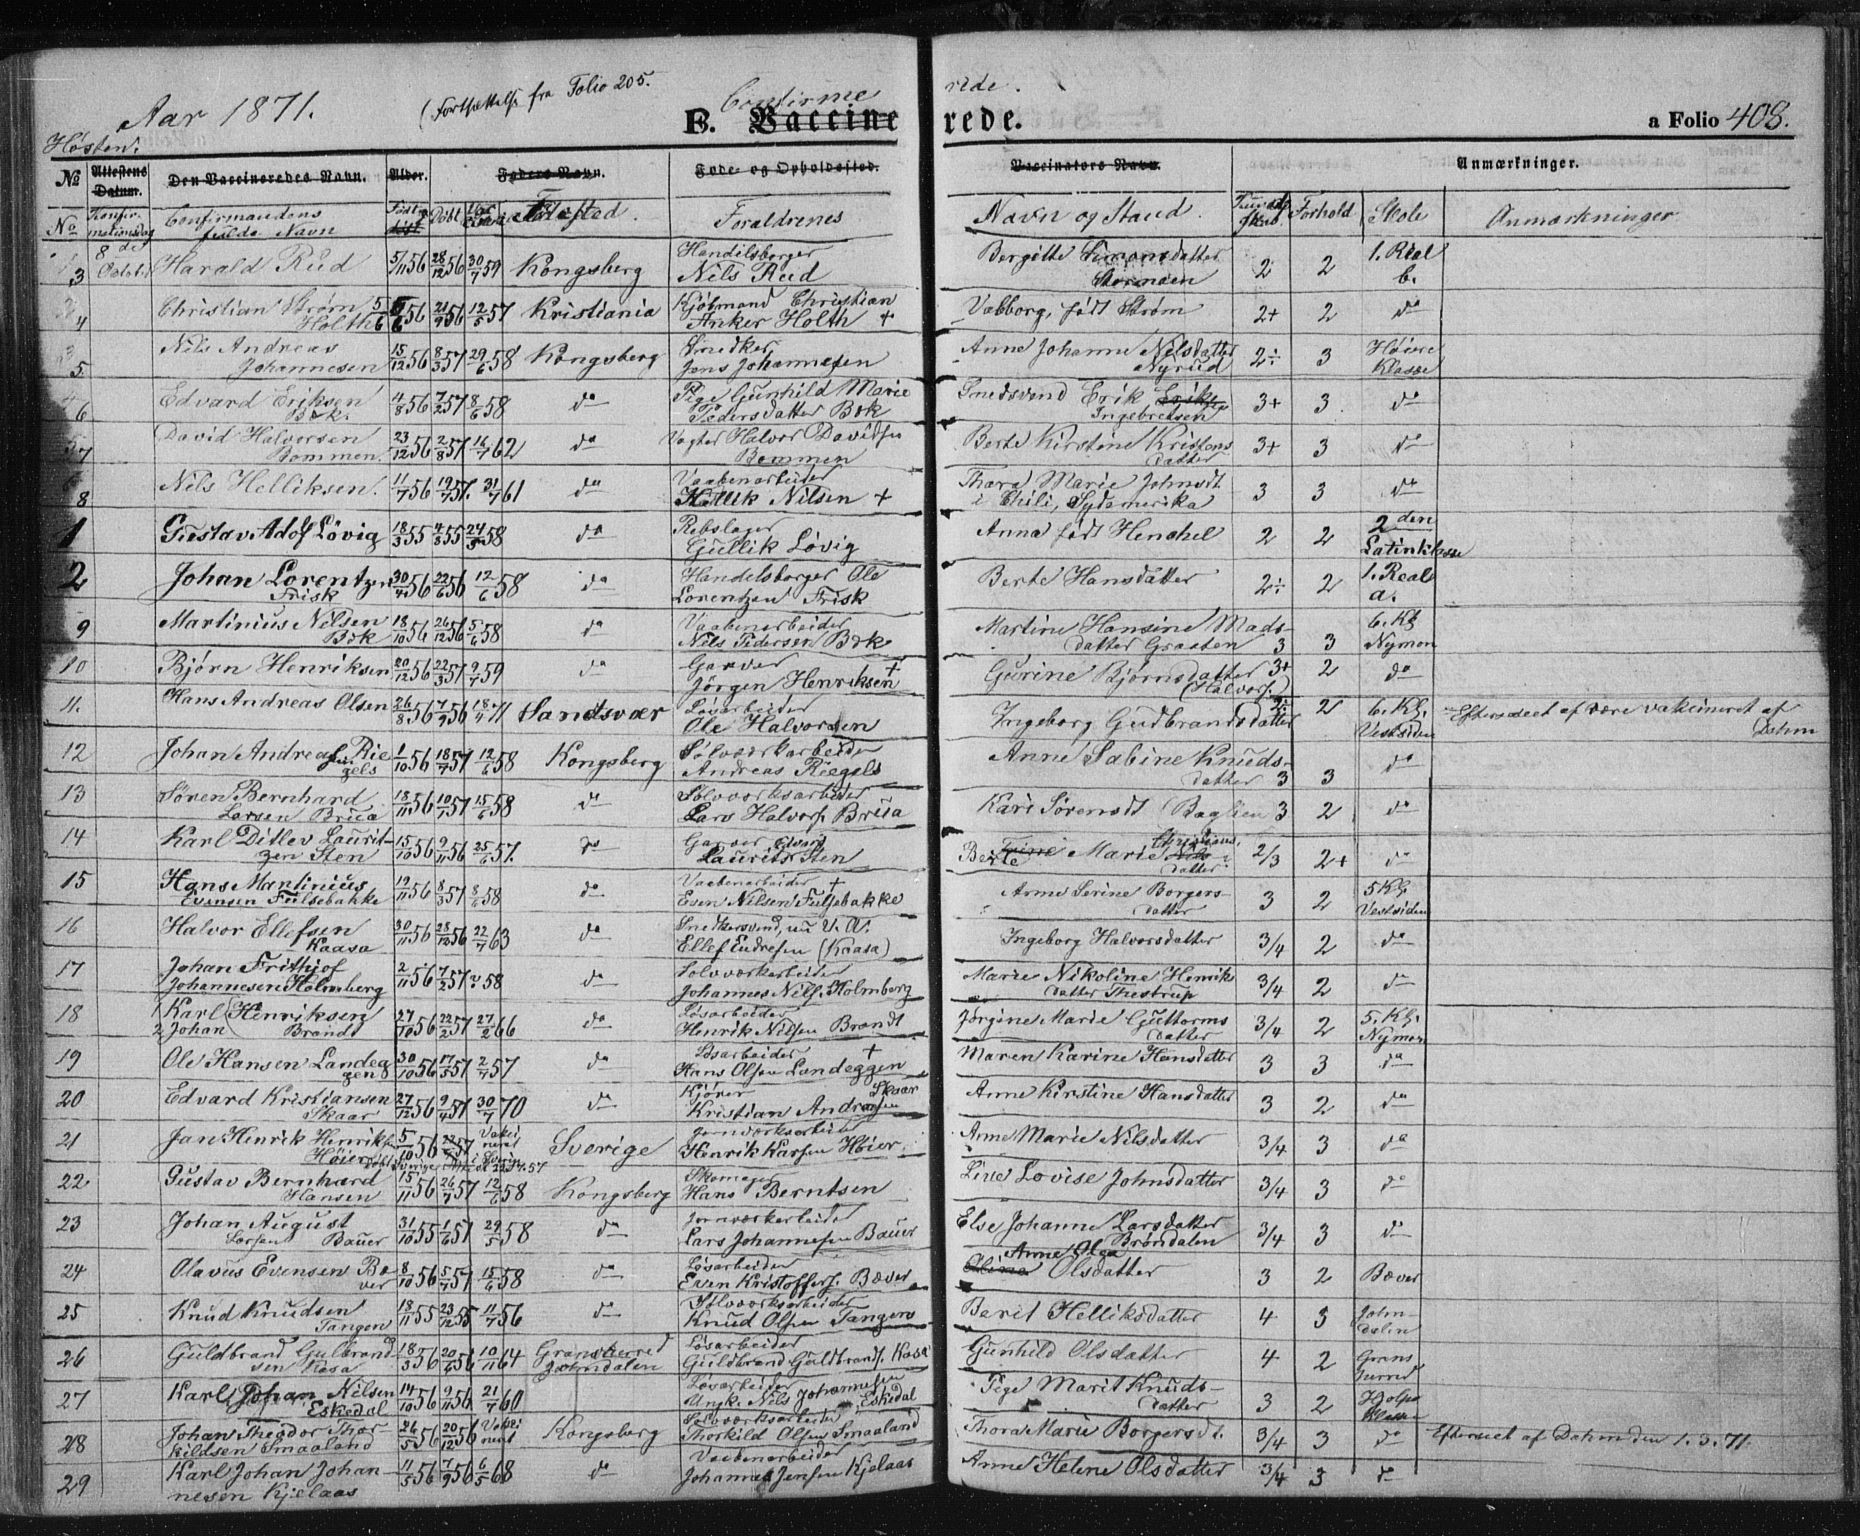 Aar 1871. (Fortsættelse fra Folio 205. Confirme rede.
E. Vaccine rede. a Folio 408.
Høsten.
No Attestens Datum. Den Vaccineredes Navn. Alder. Faders Navn. Føde- og Opholdssted. Vaccinators Navn. Anmærkninger.
No Konfirmationsdag Confirmandens fulde Navn Født Døbt Fødested. Foraldrenes Navn og Stand Forhold Skole Anmærkninger
3 8de Octbr. Harald Rud 5/11 56 28/12 56 30/7 59 Kongsberg Handelsborger Nils Rud Bergitte Simonsdatter 2 2 1. Real b.
4 Christian Strøm Holth 5/6 56 21/9 56 12/5 57 Kristiania Kjøbmand Christian Anker Holth + Valborg, født Strøm 2+ 2 do
5 Nils Andreas Johannesen 15/12 56 8/3 57 29/6 58 Kongsberg Snedker Jens Johannesen Anne Johanne Nilsdatter Nyrud 2÷ 3 Høiere Klasse
6 Edvard Eriksen Bøk. 4/8 56 7/2 57 8/6 58 do Pige Gunhild Marie Pedersdatter Bøk Smedsvend Erik Ingebretsen 3+ 3 do
7 David Halvorsen Bommen. 23/12 56 2/8 57 16/7 62 do Vagter Halvor Davidsen Bommen Berte Kirstine Kristensdatter 3+ 3 do
8 Nils Helliksen. 11/7 56 19/7 57. 31/7 61 do Vaabenarbeider Hellik Nilsen + Thara Marie Johnsdt. i Chili, Sydamerika 3 3 do
1 Gustav Adolf Löwig 18/3 55 4/8 55 24/5 58 do Rebslager Gullik Löwig Anna født Henchel 2 2 2den Latinklasse
2 Johan Lorentzen Frisk 30/4 56 22/6 56 12/6 58 do Handelsborger Ole Lorentzen Frisk Berte Hansdatter 2÷ 2 1. Real a.
9 Martinius Nilsen Bøk 18/10 56 26/12 56 5/6 58 do Vaabenarbeider Nils Pedersen Bøk Martine Hansine Madsdatter Graaten 3 3 6. Kl Nymoen
10 Bjørn Henriksen 20/12 56 22/3 57 9/7 59 do Garver Jörgen Henriksen + Gurine Bjørnsdatter (Halvors.) 3+ 2 do
11. Hans Andreas Olsen 26/8 56 7/9 56 18/4 71 Sandsvær Løsarbeider Ole Halvorsen Ingeborg Gudbrandsdatter 2÷ 2 6. Kl. Vestsiden Efterseet at være vakcineret af Dahm
12 Johan Andreas Riegels 1/10 56 18/7 57 12/6 58 Kongsberg Sølvværkarbeider Andreas Riegels Anne Sabine Knudsdatter 3 3 do
13 Søren Bernhard Larsen Brua 18/11 56 10/7 57 15/6 58 do Sølvværksarbeider Lars Halvors. Brua Kari Sørensdt Baglien 3 2 do
14 Karl Ditlev Lauritzen Sten 15/10 56 9/11 56 25/6 57. do Garver Edvard Laurits Sten Berte Marie Christiansdatter 2/3 2+ do
15 Hans Martinius Evensen Fulsebakke 19/11 56 8/3 57 8/6 58 do Vaabenarbeider + Even Nilsen Fulsebakke Anne Serine Borgersdatter 3 2 5 Kl. Vestsiden
16 Halvor Ellefsen Kaasa 30/11 56 28/12 56 22/7 63 do Snedkersvend, nu V. A. Ellef Endresen (Kaasa) Ingeborg Halvorsdatter 3/4 2 do
17 Johan Frithjof Johannesen Holmberg 2/11 56 7/2 57 58 do Sølvværkarbeider Johannes Nils. Holmberg Marie Nikoline Henriksdatter Thestrup 3/4 2 do
18 1 Karl 2 Johan (Henriksen Brandt 27/10 56 22/2 57 27/2 66 do Løsarbeider Henrik Nilsen Brandt Jørgine Marie Guttormsdatter 3/4 2 5. Kl. Nymoen
19 Ole Hansen Landeggen 30/10 56 17/5 57 2/7 57 do Løsarbeider + Hans Olsen Landeggen Maren Karine Hansdatter 3 3 do
20 Edvard Kristiansen Skaar 27/12 56 9/4 57 30/7 70 do Kjører Kristian Andreasen Skaar Anne Kirstine Hansdatter 3 2 do
21 Jan Henrik Henriks. Höier 5/10 56 57 Vakcineret Sverige Jernværksarbeider Henrik Karsen Höier Anne Marie Nilsdatter 3/4 3 do
22 Gustav Bernhard Hansen 15/11 56 26/7 57 12/6 58 Kongsberg Skomager Hans Berntsen Line Lovise Johnsdatter 3/4 3 do
23 Johan August Larsen Bauer 31/10 55 1/6 51 29/5 58 do Jernværkarbeider Lars Johannesen Bauer Else Johanne Larsdatter Brøndalen 3/4 3 do
24 Olavus Evensen Bæver 8/10 56 5/7 57 15/6 58 do Løsarbeider Even Kristoffers. Bæver Anne Olea Olsdatter 3 2 Bæver
25 Knud Knudsen Tangen 18/11 55 23/12 55 11/7 56 do Sølvværksarbeider Knud Olsen Tangen Berit Helliksdatter 4 3 Johndalen
26 Guldbrand Gulbrandsen Kasa 18/3 56 20/6 56 10/11 64 Gransherred Johndalen Løsarbeider Guldbrand Guldbrands. Kasa Gunhild Olsdatter 4 2 Gransherred
27 Karl Johan Nilsen Eskedal 14/10 56 9/11 56 21/7 60 Løsarbeider Ungk. Nils Johannesen Eskedal Pige Marit Knudsdatter 3 2 Hjelpe Klasse
28 Johan Theodor Thorkildsen Smaaland 26/5 56 20/12 56 Vakcineret Kongsberg Sølvværksarbeider Thorkild Olsen Smaaland Thora Marie Borgersdt. 3/4 3 do Efterseet af Dahm den 1.3.71.
29 Karl Johan Johannesen Kjelaas 11/5 56 7/9 56 6/5 68 do Vaabenarbeider Johannes Jensen Kjelaas Anne Helene Olsdatter 3/4 3 do